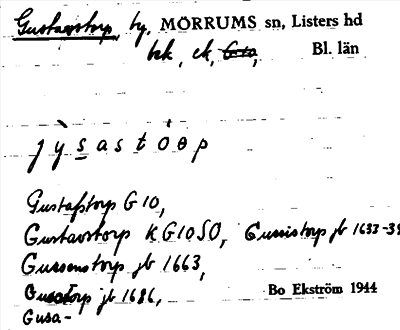 Gustavstorp, by, MÖRRUMS sn, Listers hd
bek, ek, Bl. län
jỳsastȯɵp
Gustafstorp G 10,
Gustavstorp KG10SO, Gussistorp jb 1633-39
Gussenstorp jb 1663,
Gusetorp jb 1686, Bo Ekström 1944
Gusa-